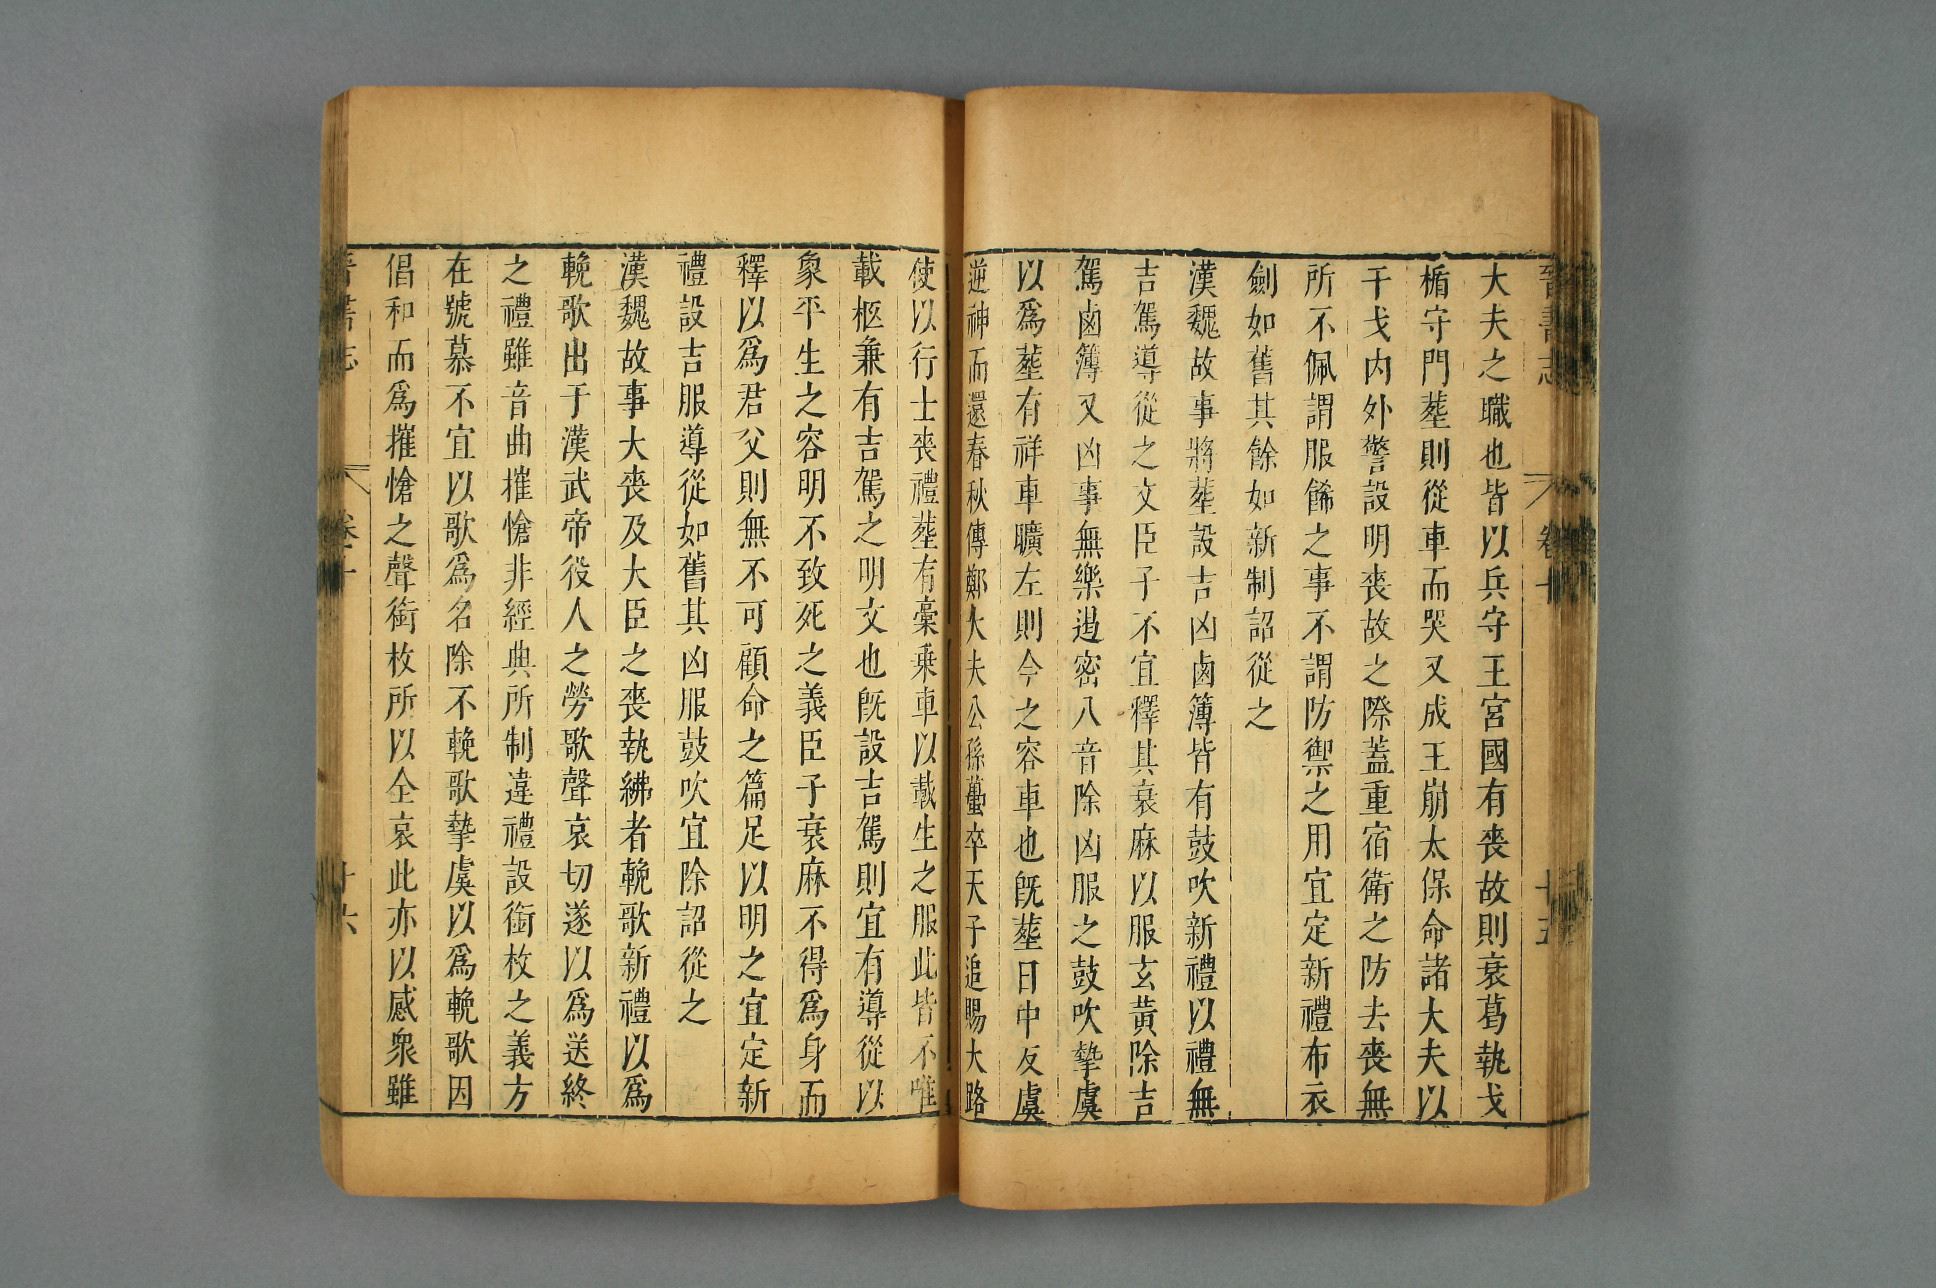 晉書志 卷十 十五
大夫之職也皆以兵守王宮國有喪故則衰葛執戈
楯守門塟則從車而哭又成王崩太保命諸大夫以
干戈内外警設明喪故之際蓋重宿衛之防去喪無
所不佩謂服餙之事不謂防禦之用宜定新禮布衣
劍如舊其餘如新制詔從之
漢魏故事將塟設吉凶鹵簿皆有鼓吹新禮以禮無
吉駕導從之文臣子不宜釋其衰麻以服玄黃除吉
駕鹵簿又凶事無樂遏密八音除凶服之鼓吹摯虞
以爲塟有祥車曠左則今之容車也旣塟日中反虞
逆神而還春秋傳鄭大夫公孫蠆卒天子追賜大路
使以行士喪禮塟有稾乗車以載生之服此皆不唯
載柩兼有吉駕之明文也旣設吉駕則宜有導從以
象平生之容明不致死之義臣子衰麻不得爲身而
釋以爲君父則無不可顧命之篇足以明之宜定新
禮設吉服導從如舊其凶服鼓吹宜除詔從之
漢魏故事大喪及大臣之喪執紼者輓歌新禮以爲
輓歌出于漢武帝役人之勞歌聲哀切遂以爲送終
之禮雖音曲摧愴非經典所制違禮設銜枚之義方
在號慕不宜以歌爲名除不輓歌摯虞以爲輓歌因
倡和而爲摧愴之聲銜枚所以全哀此亦以感衆雖
晉書志 卷十 十六